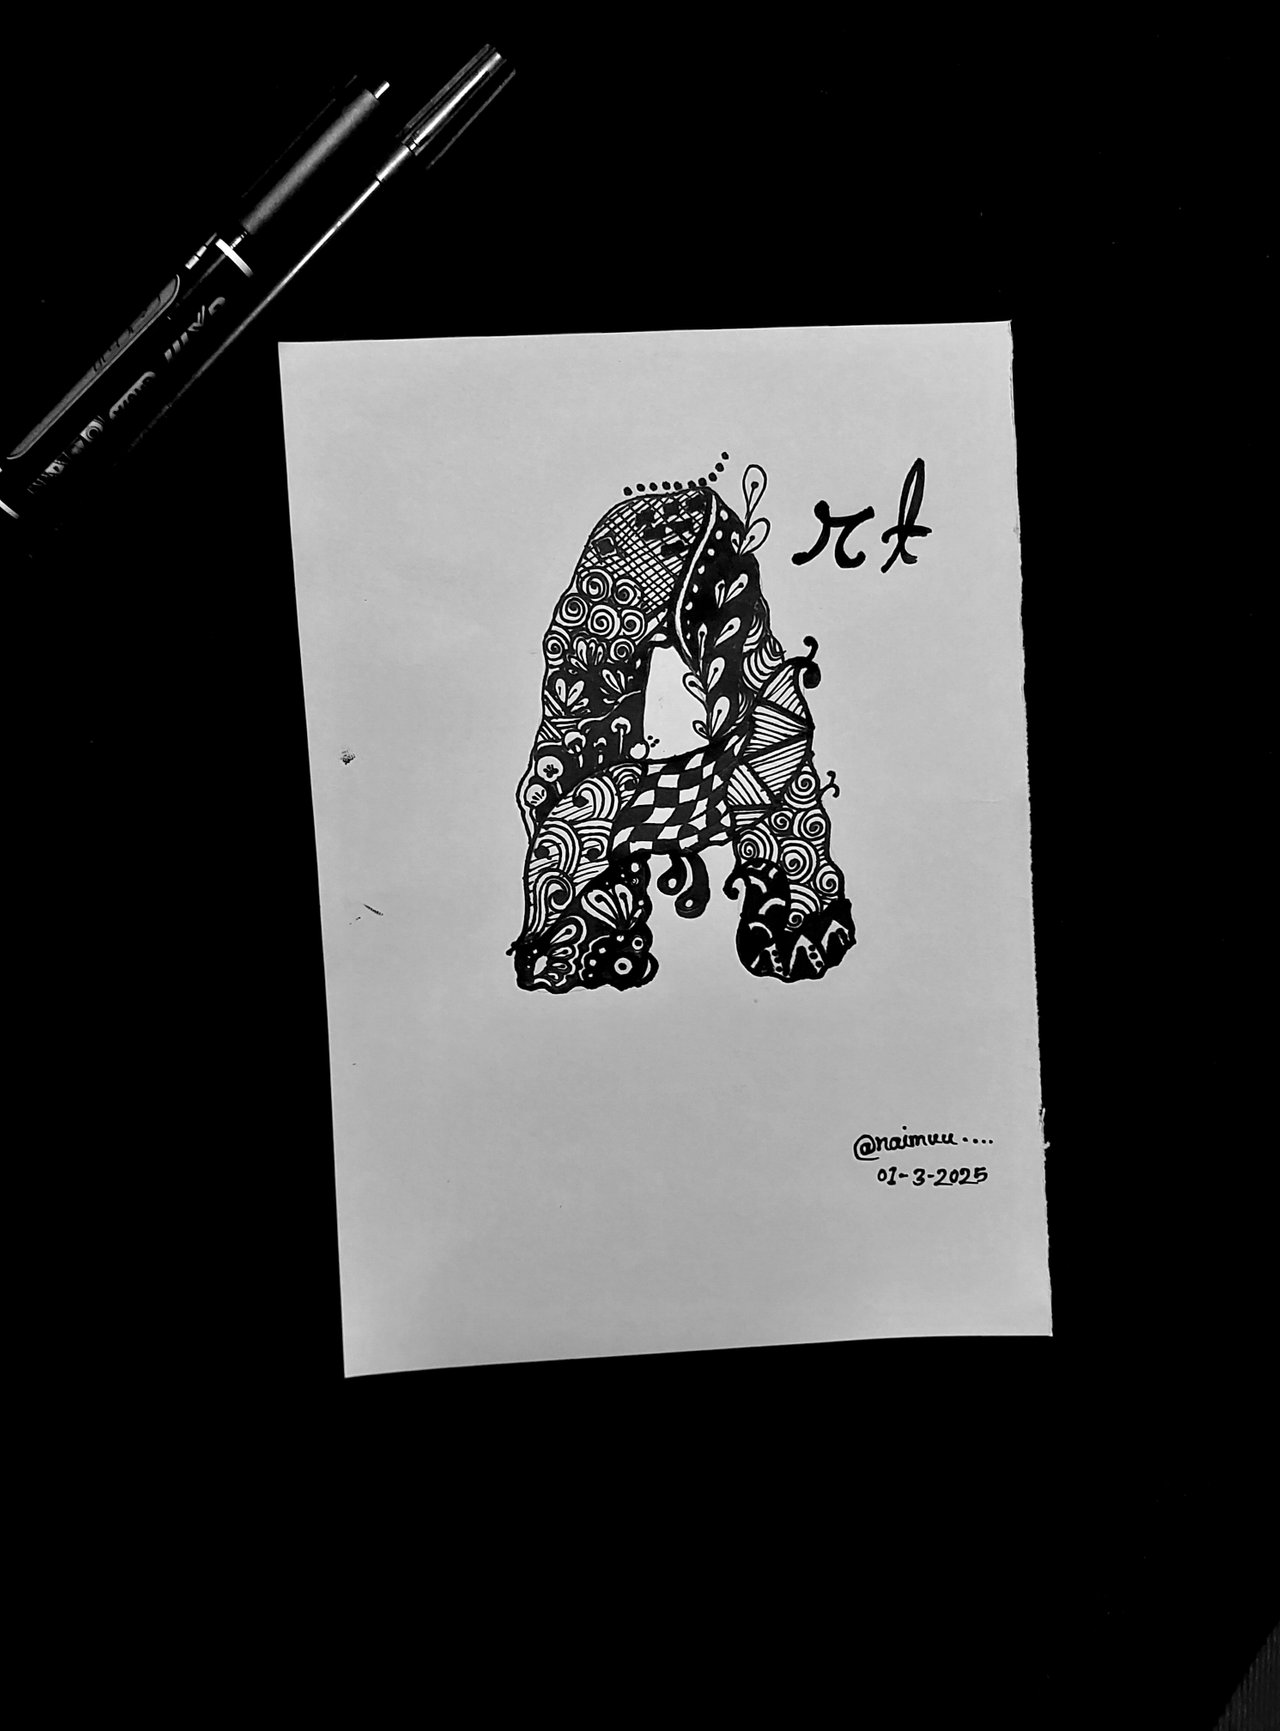 Art
@naimuu....
01-3-2025